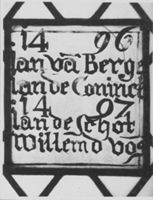 14 96
Ian vā Berg
Ian de Coninc
14 97
ian de Schot
Willem d vos